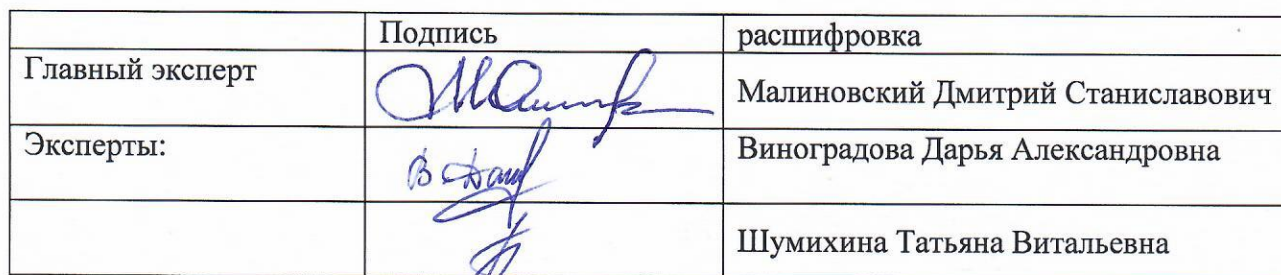 Подпись расшифровка
Главный эксперт Малиновский Дмитрий Станиславович
Эксперты: Виноградова Дарья Александровна
Шумихина Татьяна Витальевна